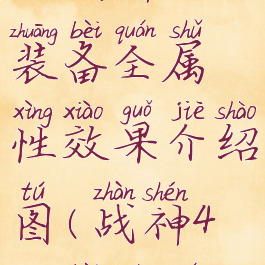 zhuāng bèi quán shǔ
装备全属
xìng xiào guǒ jiè shào
性效果介绍
tú zhàn shén
图(战神4